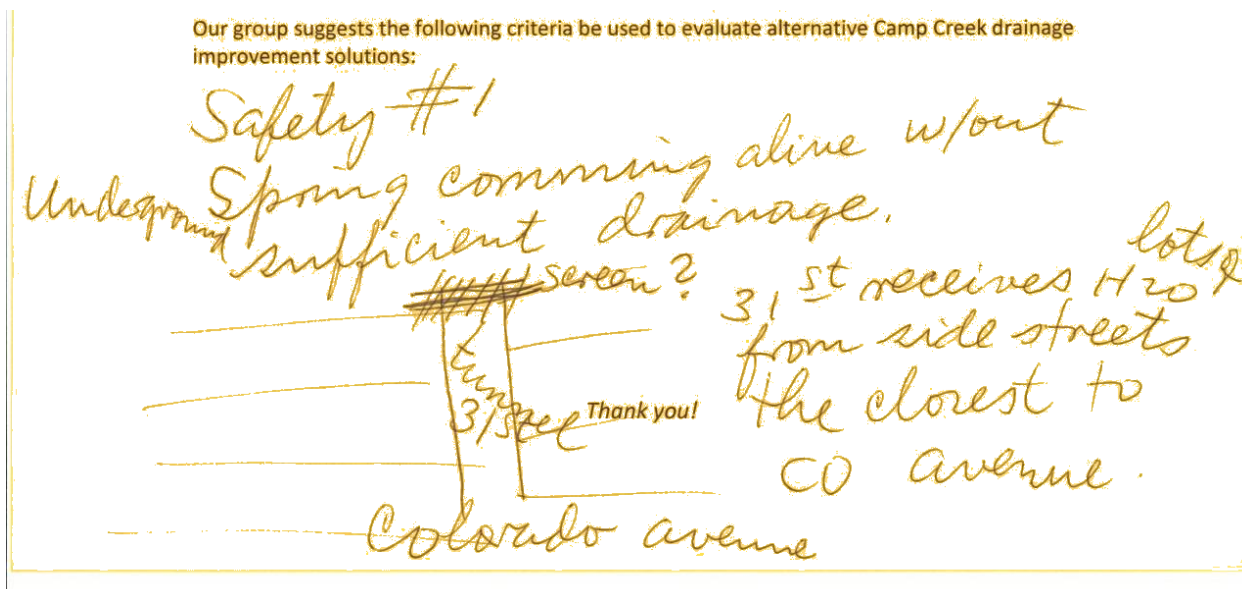 Our group suggests the following criteria be used to evaluate alternative Camp Creek drainage
improvement solutions:
Safety #1
Underground Spring comming alive w/out
sufficient drainage.
screen?
tunnel
31st
Thank you!
lots of
31st receives H2O
from side streets
the closest to
CO avenue.
Colorado avenue